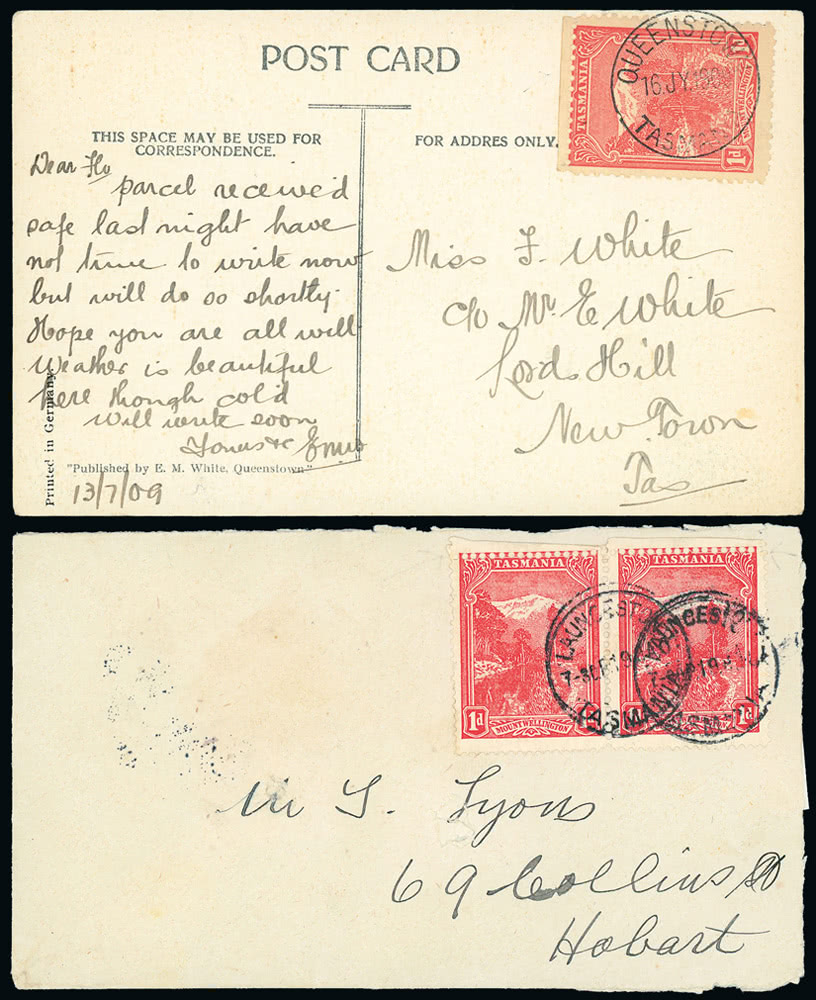 POST CARD
THIS SPACE MAY BE USED FOR
CORRESPONDENCE.
FOR ADDRES ONLY.
TASMANIA
1d
MOUNT WELLINGTON
1d
QUEENSTOW
16 JY 190
TAS
Dear Flo
parcel received
safe last night have
not time to write now
but will do so shortly.
Hope you are all well
Weather is beautiful
here though cold
Will write soon
Yours &c
Printed in Germany.
"Published by E. M. White, Queenstown"
13/7/09
Miss F. White
c/o Mr E White
Lords Hill
New Town
Tas
TASMANIA
1d
MOUNT WELLINGTON
TASMANIA
1d
LAUNCESTO
7-SEP 19
TASMANIA
LAUNCESTO
7-SEP 19
TASMANIA
69 Collins St
Hobart